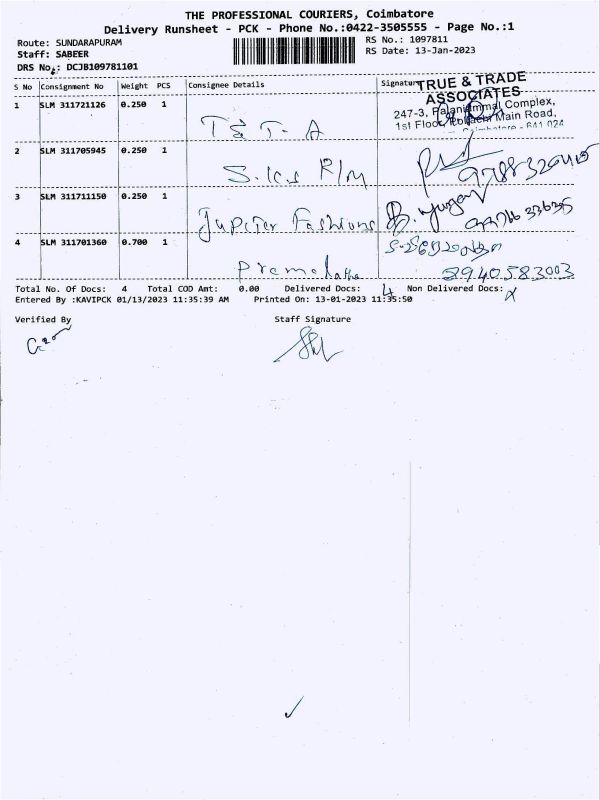 THE PROFESSIONAL COURIERS, Coimbatore
Delivery Runsheet - PCK - Phone No.:0422-3505555 - Page No.:1
Route: SUNDARAPURAM
RS No.: 1097811
Staff: SABEER
RS Date: 13-Jan-2023
DRS No.: DCJB109781101
S No Consignment No Weight PCS Consignee Details Signature
TRUE & TRADE
ASSOCIATES
247-3, Palaniammal Complex,
1st Floor, Pollachi Main Road,
Coimbatore - 641 024
1 SLM 311721126 0.250 1 T & T - A
2 SLM 311705945 0.250 1
3 SLM 311711150 0.250 1 Jupiter Fashions
4 SLM 311701360 0.700 1 Premalatha
8940583003
Total No. Of Docs: 4 Total COD Amt: 0.00 Delivered Docs: 4 Non Delivered Docs: x
Entered By :KAVIPCK 01/13/2023 11:35:39 AM Printed On: 13-01-2023 11:35:50
Verified By Staff Signature